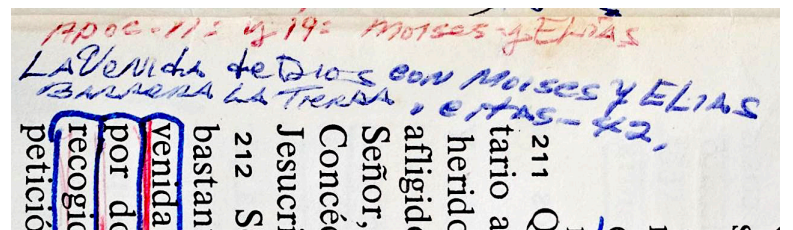 Apoc-11: y 19: Moises y ELiAs
LA VeNidA de Dios con Moises y ELIAS
BARRERA LA TIERRA,
211 Q
tario a
herido
afligido
Señor,
Concéd
Jesucri
212 S
bastan
venida
por do
recogid
petició